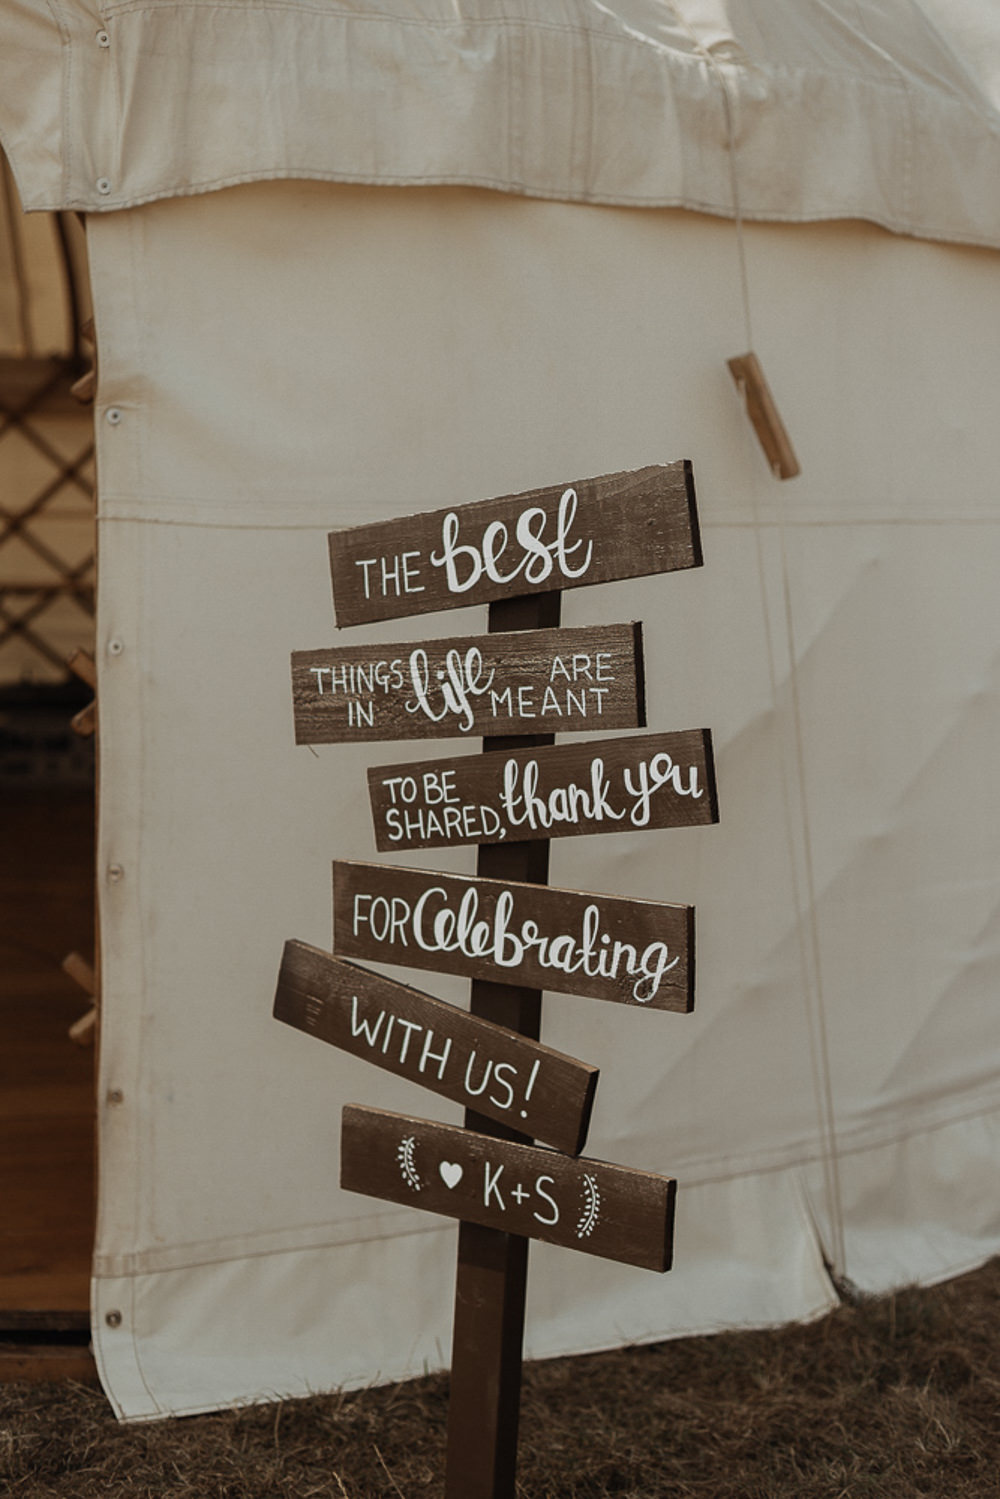 THE best
THINGS IN life ARE MEANT
TO BE SHARED, thank you
FOR Celebrating
WITH US!
K+S